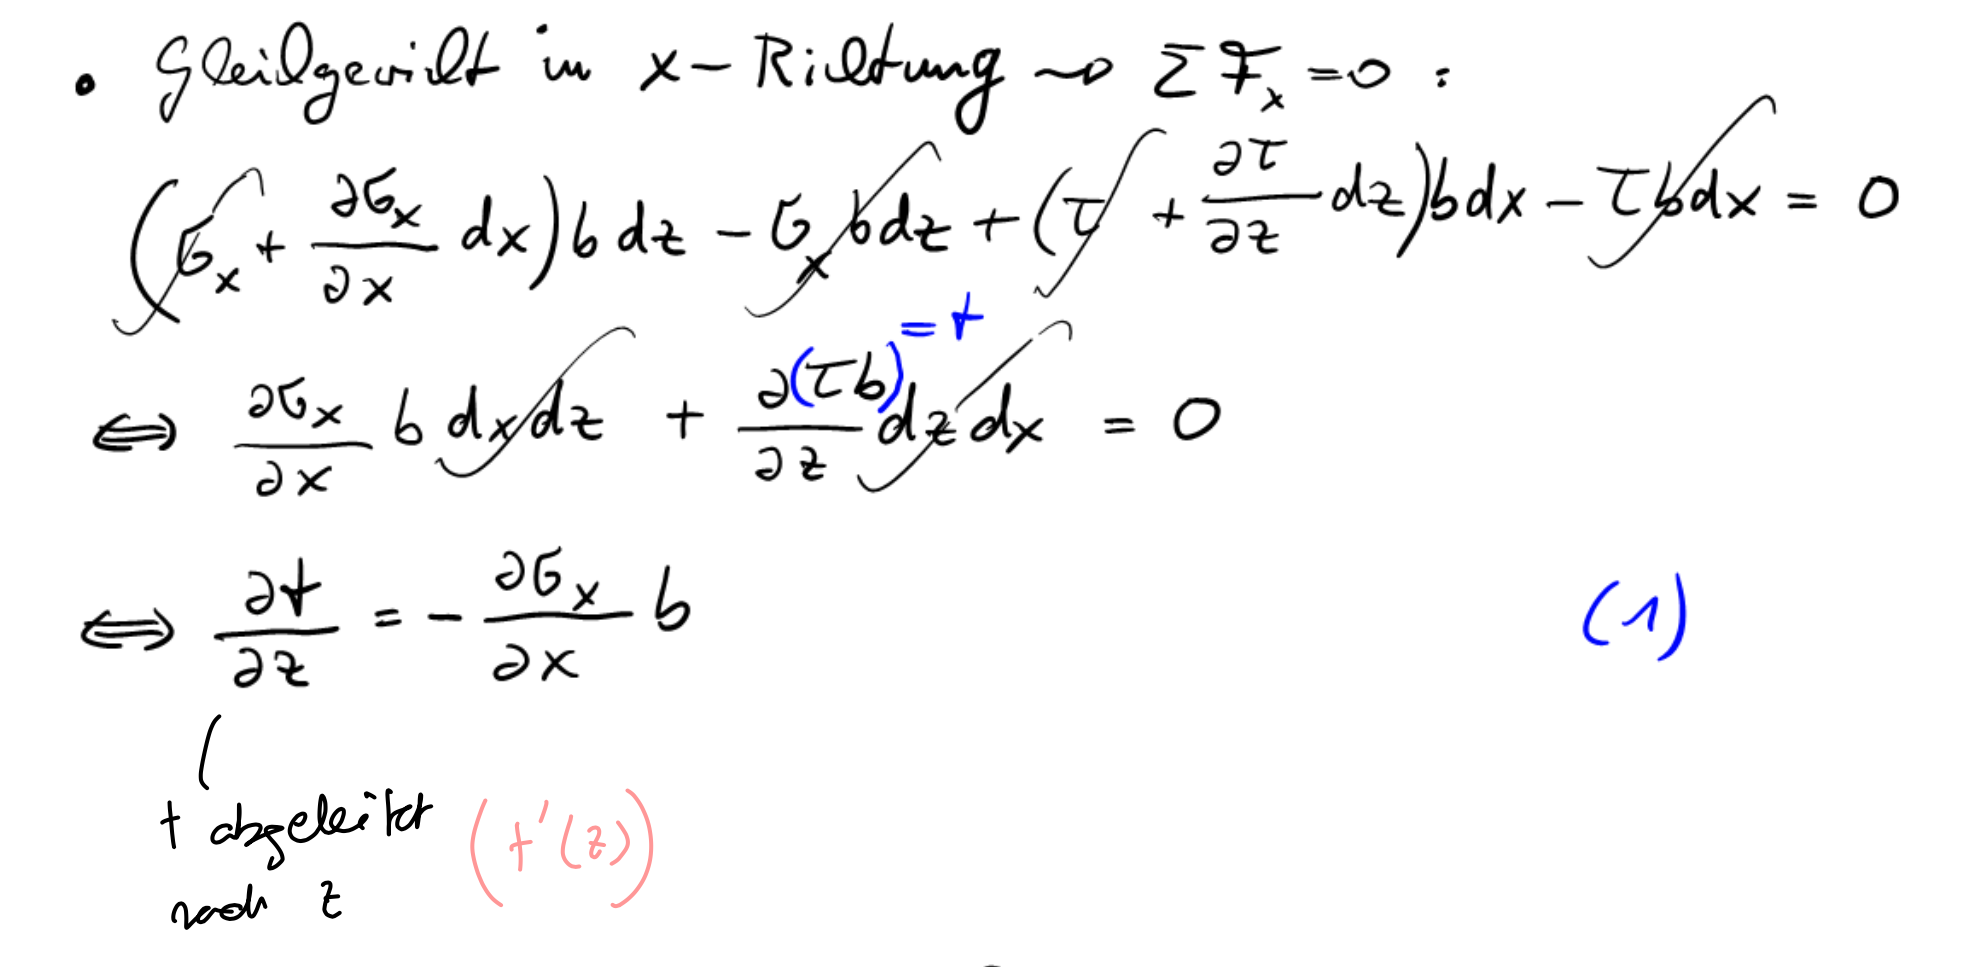 • Gleichgewicht in x-Richtung ⇝ ΣF_x = 0 :
(σ_x + ∂σ_x/∂x dx) b dz − σ_x b dz + (τ + ∂τ/∂z dz) b dx − τ b dx = 0
⇔ ∂σ_x/∂x b dx dz + ∂(τb)/∂z dz dx = 0
= t
⇔ ∂t/∂z = − ∂σ_x/∂x b (1)
t abgeleitet (t'(z))
nach z